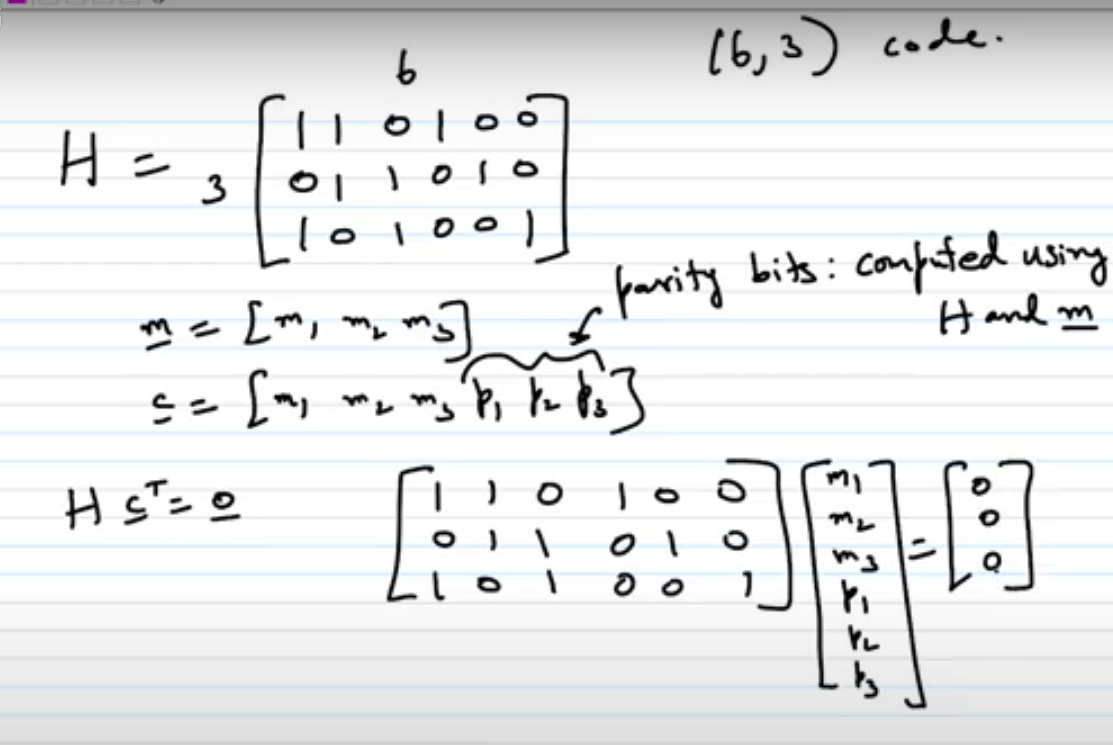 (6,3) code.
6
H = 3 [ 1 1 0 1 0 0
0 1 1 0 1 0
1 0 1 0 0 1 ]
parity bits: computed using
H and m
m = [m₁ m₂ m₃]
c = [m₁ m₂ m₃ p₁ p₂ p₃]
H cᵀ = 0 [ 1 1 0 1 0 0
0 1 1 0 1 0
1 0 1 0 0 1 ] [ m₁ m₂ m₃ p₁ p₂ p₃ ] = [ 0 0 0 ]